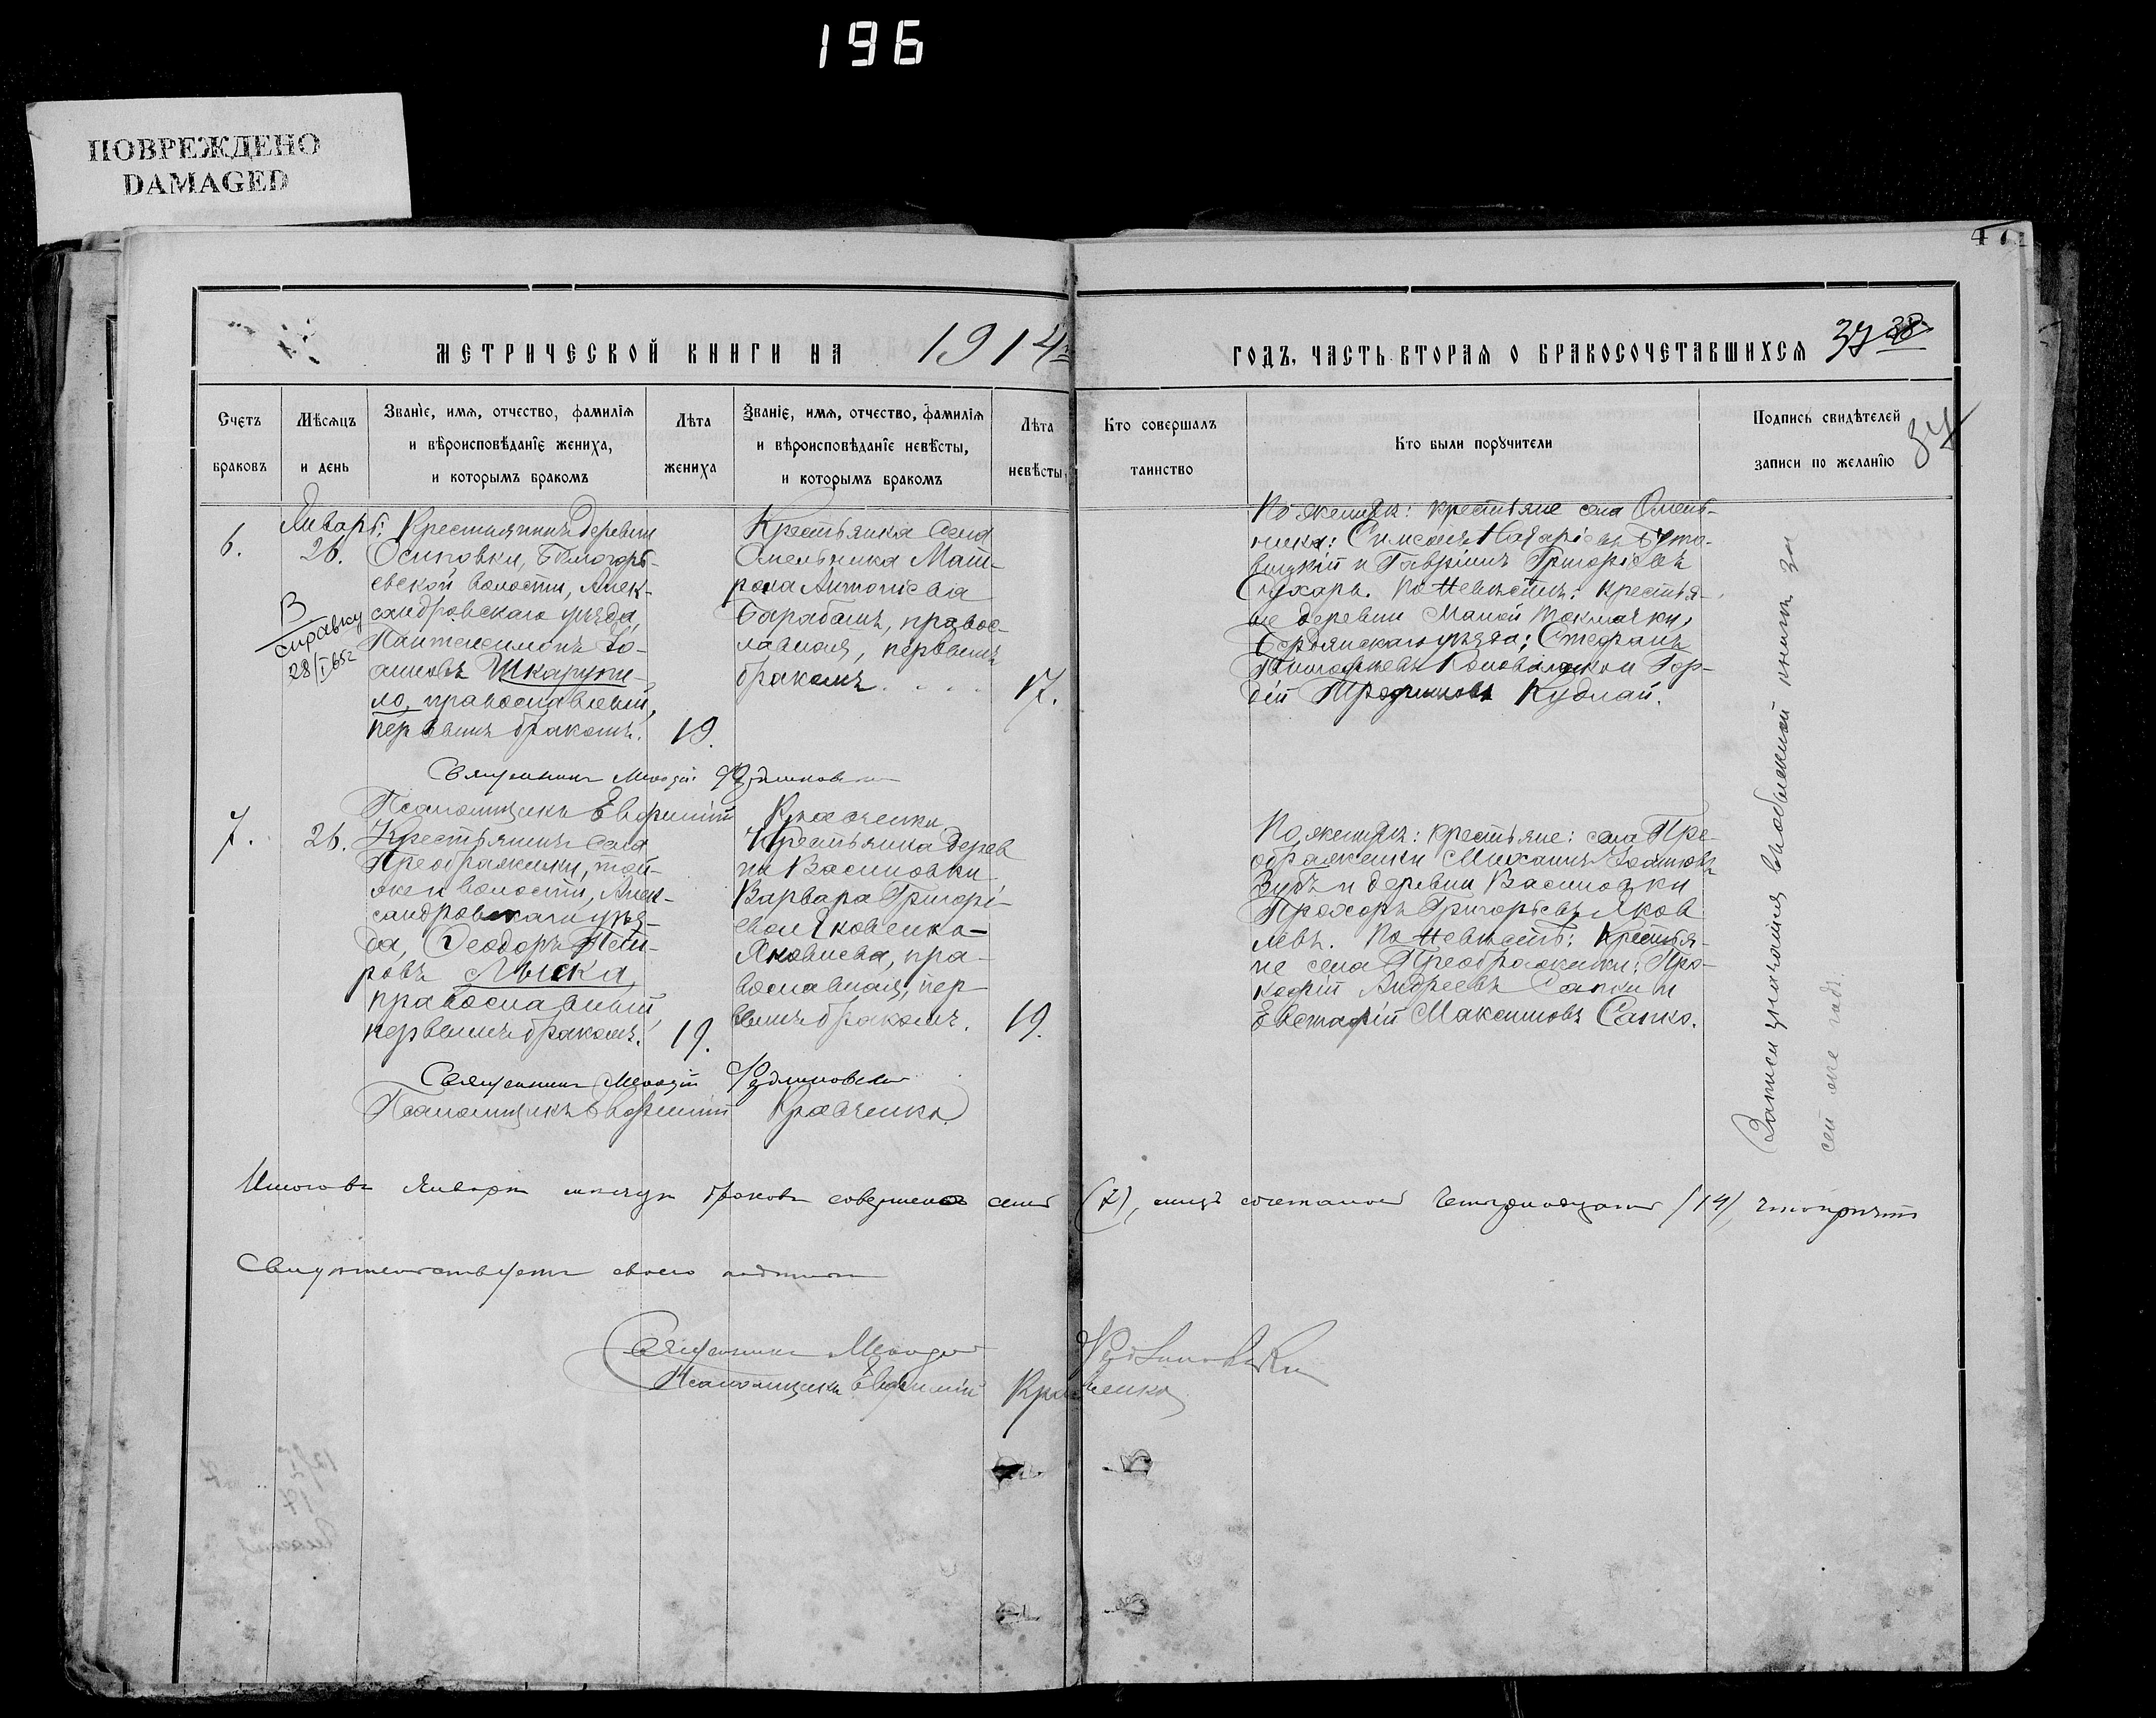 196
ПОВРЕЖДЕНО
DAMAGED
МЕТРИЧЕСКОЙ КНИГИ НА 1914
ГОДЪ, ЧАСТЬ ВТОРАЯ О БРАКОСОЧЕТАВШИХСЯ 37 38
34
Счетъ
браковъ
Мѣсяцъ
и день
Званіе, имя, отчество, фамилія
и вѣроисповѣданіе жениха,
и которымъ бракомъ
Лѣта
жениха
Званіе, имя, отчество, фамилія
и вѣроисповѣданіе невѣсты,
и которымъ бракомъ
Лѣта
невѣсты,
Кто совершалъ
таинство
Кто были поручители
Подпись свидѣтелей
записи по желанію
6.
Январь:
26.
В
справку
28/I 652
Крестьянинъ деревни
Осиповки, Бѣлогорь-
евской волости, Алек-
сандровскаго уѣзда,
Пантелеимонъ Іо-
анновъ Шкарупи-
ло, православный,
первымъ бракомъ.
19.
Крестьянка села
Омельника Мат-
рона Антоніева
Барабашъ, правос-
лавная, первымъ
бракомъ. . . . .
17.
По женихѣ: крестьяне села Омель-
ника: Симеонъ Назаріевъ
и Гавріилъ Григоріевъ
Сухарь. По невѣстѣ: крестья-
не деревни Малой Токмачки,
Бердянскаго уѣзда: Стефанъ
Тимофеевъ и Гор-
дій Трофимовъ Кудлай.
Священникъ
Псаломщикъ Евфимій Кравченко
7.
26.
Крестьянинъ села
Преображенки, той-
же волости, Алек-
сандровскаго уѣз-
да, Ѳеодоръ Пет-
ровъ Лыска,
православный,
первымъ бракомъ.
19.
Крестьянка дерев
ни Васиновки
Варвара Григорі-
ева Яковенко-
Яковлева, пра-
вославная, пер-
вымъ бракомъ.
19.
По женихѣ: крестьяне: села Пре-
ображенки Михаилъ Іоанновъ
Зубъ и деревни Васиновки
Прохоръ Григорьевъ Яков
левъ. По невѣстѣ: крестья-
не села Преображенки: Про-
кофій Андреевъ Сапко и
Евстафій Максимовъ Сапко.
Священникъ
Псаломщикъ Евфимій Кравченко.
Итого въ Январѣ мѣсяцѣ браковъ совершено семь (7), лицъ сочеталось четырнадцать (14), что причтъ
свидѣтельствуетъ своею подписью
Священникъ
Псаломщикъ Евфимій Кравченко
сей же годъ.